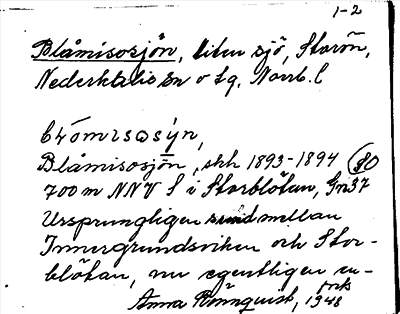 1-2
Blåmisosjön, liten sjö, Storön,
Nederkalix sn o tg, Norrb. l
Blåmisosjön, skh 1893-1894 80
700 m NNV S i Storblötan, Gn 37
Ursprungligen sund mellan
Innergrundsviken och Stor-
blötan, nu egentligen en-
Anna Rönnquist, 1948